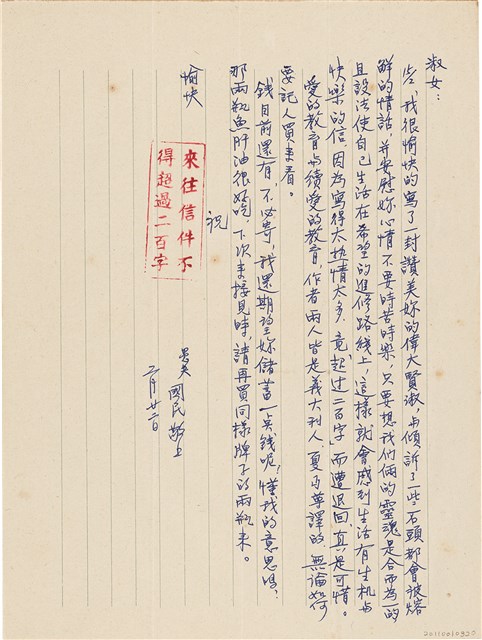 淑女：
昨，我很愉快的寫了一封讚美妳的偉大賢淑，与傾訴了一些石頭都會被熔
解的情話，并安慰妳心情不要時苦時樂，只要想我们俩的靈魂是合而為一的
且設法使自己生活在希望的進修路线上，這樣就會感到生活有生机与
快樂的信，因為寫得太热情太多，竟起过二百字」而遭退回，真是可惜。
愛的教育与續愛的教育，作者兩人皆是義大刹人，夏丏尊譯的，無論如何
要託人買来看。
錢目前還有，不必寄，我還期望妳儲蓄一点钱呢！懂我的意思嗎？
那兩瓶魚肝油很好吃，下次来接見時，請再買同樣牌子的兩瓶来。
祝
愉快
國民 敬上
二月廿二日
來往信件不
得超過二百字
20110010320